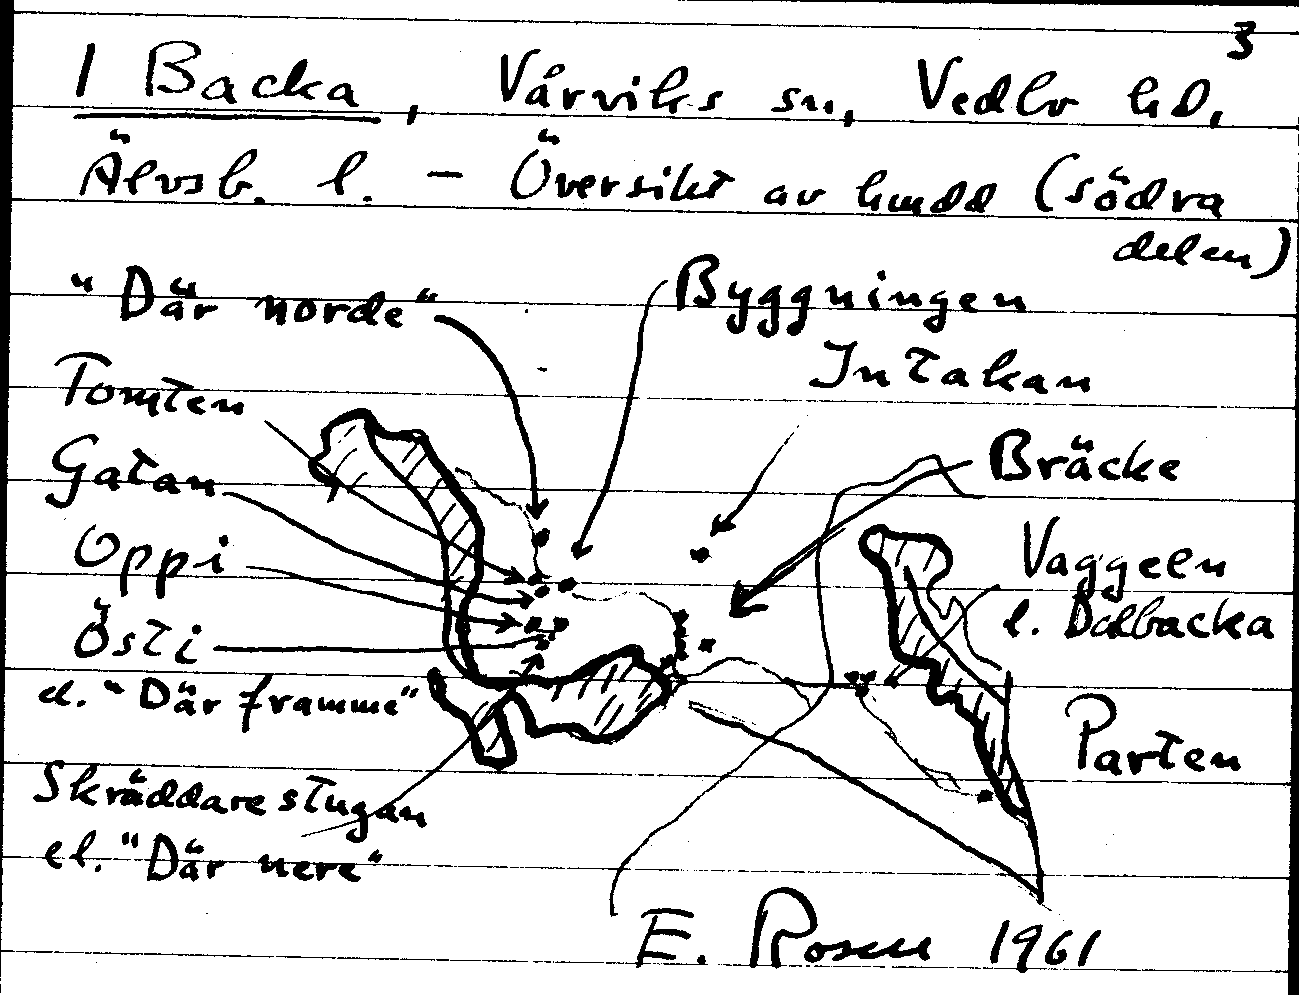 3
1 Backa, Vårviks sn, Vedbo hd,
Älvsb. l. - Översikt av hmdd (södra
delen)
"Där norde"
Byggningen
Intakan
Tomten
Gatan
Bräcke
Oppi
Vaggeln
l. Dalbacka
Östi
el. "Där framme"
Parten
Skräddarestugan
el. "Där nere"
E. Rosell 1961